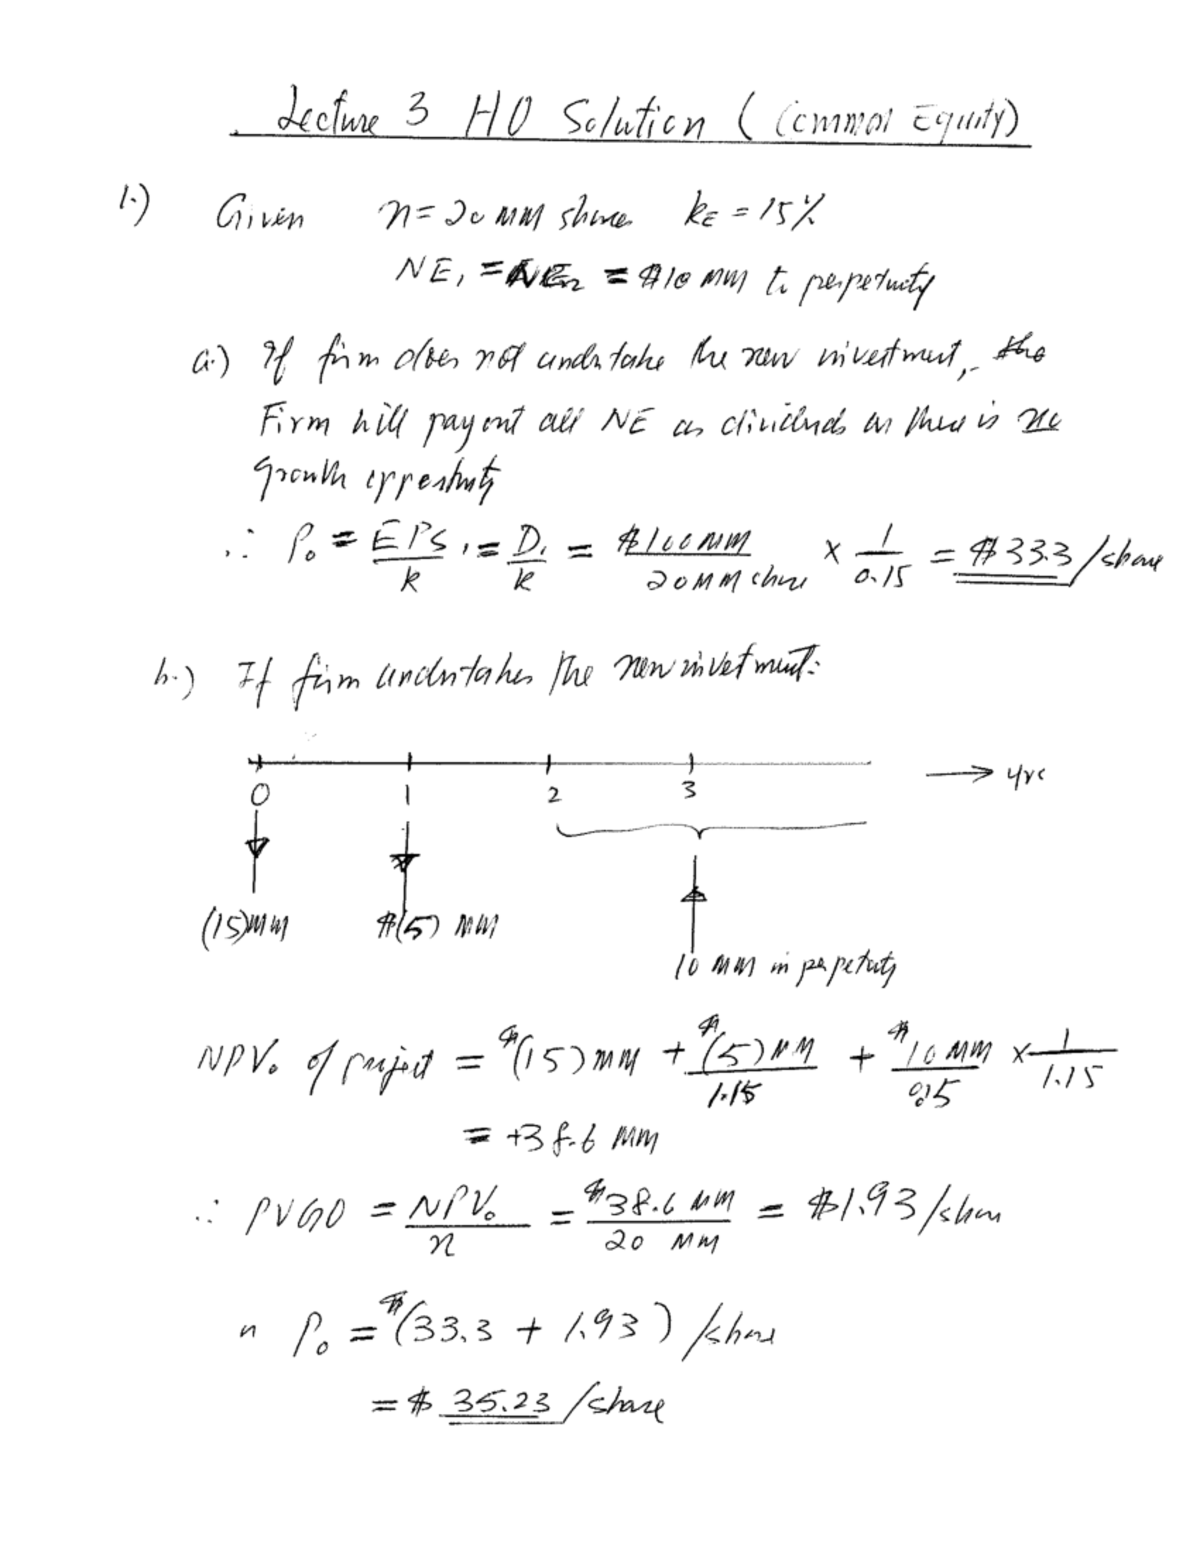 Lecture 3 HO Solution (Common Equity)
1.) Given n = 20 MM share kE = 15%
NE1 = = $10 MM to perpetuity
a.) If firm does not undertake the new investment,
Firm will payout all NE as dividends as there is no
growth opportunity
∴ P0 = EPS1/k = D1/k = $100MM/20MM share × 1/0.15 = $33.3/share
b.) If firm undertakes the new investment:
0 1 2 3 → yrs
(15)MM $(5) MM
10 MM in perpetuity
NPV0 of project = $(15)MM + $(5)MM/1.15 + $10MM/0.15 × 1/1.15
= +38.6 MM
∴ PVGO = NPV0/n = $38.6 MM/20 MM = $1.93/share
" P0 = $(33.3 + 1.93)/share
= $ 35.23/share